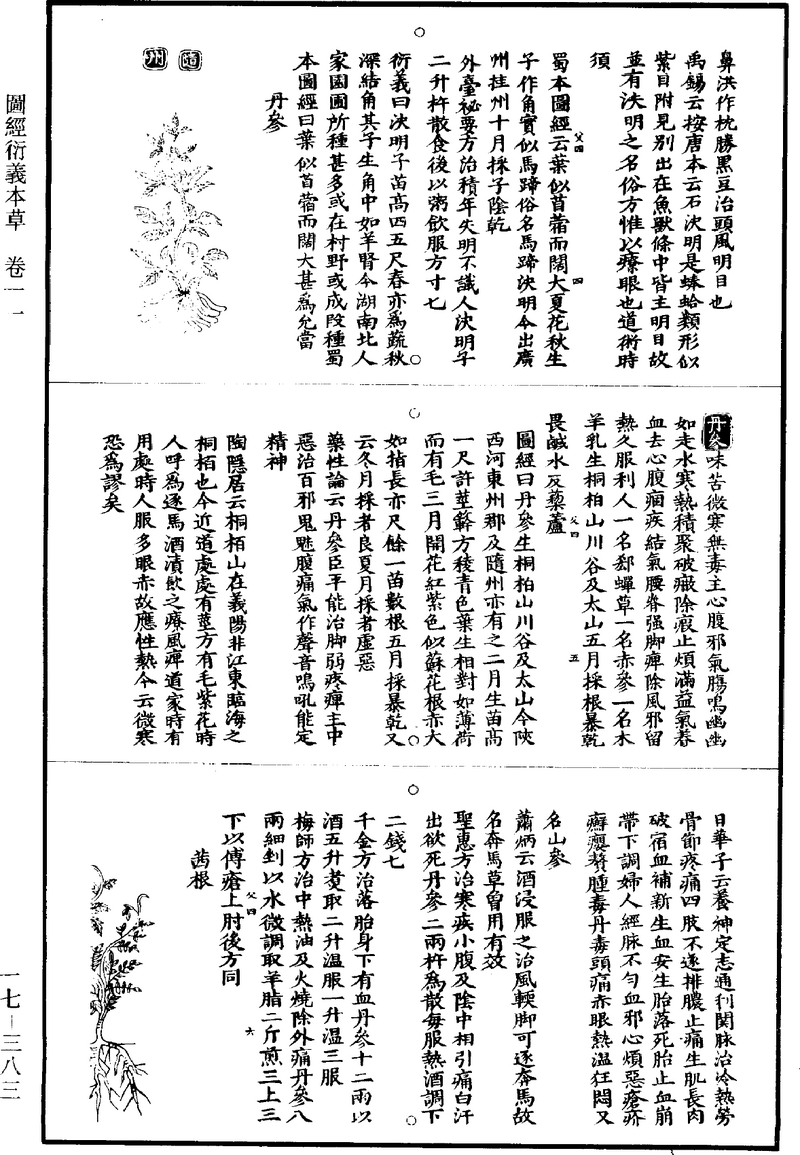 鼻洪作枕勝黑豆治頭風明目也
禹錫云按唐本云石決明是蛛蛤類形似
紫貝附見別出在魚獸條中皆主明目故
並有決明之名俗方惟以療眼也道術時
須
蜀本圖經云葉似苜蓿而闊大夏花秋生
子作角實似馬蹄俗名馬蹄決明今出廣
州桂州十月採子陰乾
外臺秘要方治積年失明不識人決明子
二升杵散食後以粥飲服方寸七
衍義曰決明子苗高四五尺春亦爲蔬秋
深結角其子生角中如羊腎今湖南北人
家園圃所種甚多或在村野或成段種蜀
本圖經曰葉似苜蓿而闊大甚爲允當
丹參
隨
州
丹參味苦微寒無毒主心腹邪氣腸鳴幽幽
如走水寒熱積聚破癥除瘕止煩滿益氣養
血去心腹痼疾結氣腰脊强脚痺除風邪留
熱久服利人一名郄蟬草一名赤參一名木
羊乳生桐柏山川谷及太山五月採根暴乾
畏鹹水反藜蘆
圖經曰丹參生桐柏山川谷及太山今陝
西河東州郡及隨州亦有之二月生苗高
一尺許莖簳方稜青色葉生相對如薄荷
而有毛三月開花紅紫色似蘇花根赤大
如指長亦尺餘一苗數根五月採暴乾又
云冬月採者良夏月採者虛惡
藥性論云丹參臣平能治脚弱疼痺主中
惡治百邪鬼魅腹痛氣作聲音鳴吼能定
精神
陶隱居云桐栢山在義陽非江東臨海之
桐栢也今近道處處有莖方有毛紫花時
人呼爲逐馬酒漬飲之療風痺道家時有
用處時人服多眼赤故應性熱今云微寒
恐爲謬矣
日華子云養神定志通利関脉治冷熱勞
骨節疼痛四肢不遂排膿止痛生肌長肉
破宿血補新生血安生胎落死胎止血崩
帶下調婦人經脉不勻血邪心煩惡瘡疥
癬癭贅腫毒丹毒頭痛赤眼熱溫狂悶又
名山參
蕭炳云酒浸服之治風軟脚可逐奔馬故
名奔馬草曾用有效
聖惠方治寒疾小腹及陰中相引痛白汗
出欲死丹參二兩杵爲散每服熱酒調下
二錢七
千金方治落胎身下有血丹參十二兩以
酒五升煑取二升温服一升温三服
梅師方治中熱油及火燒除外痛丹參八
兩細剉以水微調取羊脂二斤煎三上三
下以傅瘡上肘後方同
茜根
圖經衍義本草 卷一一
一七-三八三